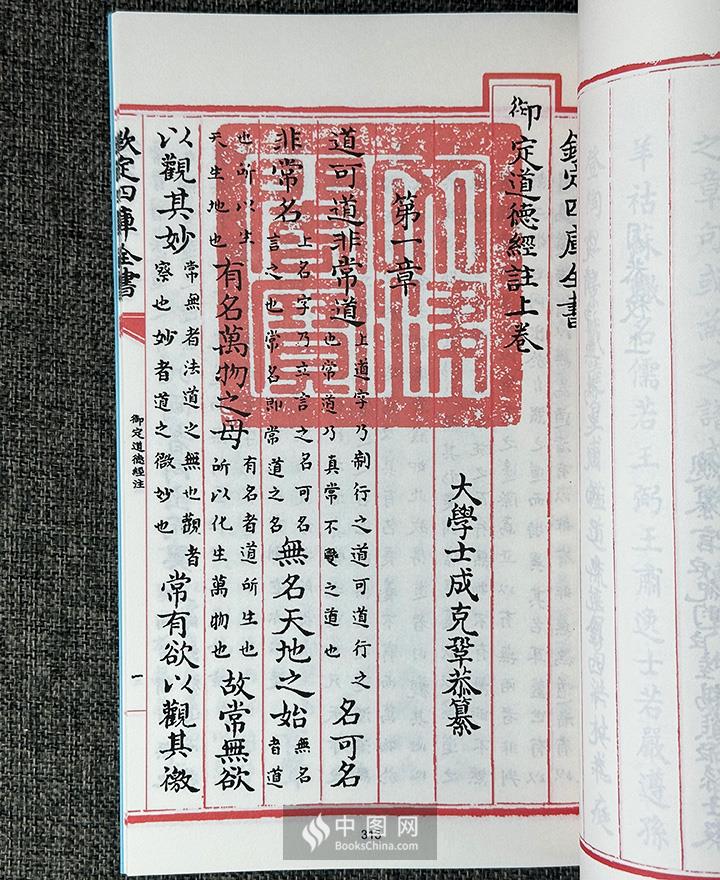 欽定四庫全書
御定道德經註上卷
大學士成克鞏恭纂
第一章
道可道非常道上道字乃制行之道可道行之也常道乃真常不變之道也名可名
非常名上名字乃立言之名可名言之也常名即常道之名無名天地之始無名者道
也所以生天生地也有名萬物之母有名者道所生也所以化生萬物也故常無欲
以觀其妙常無者法道之無也觀者察也妙者道之微妙也常有欲以觀其徼
欽定四庫全書
御定道德經注
一
文淵閣寶
中图网
BooksChina.com